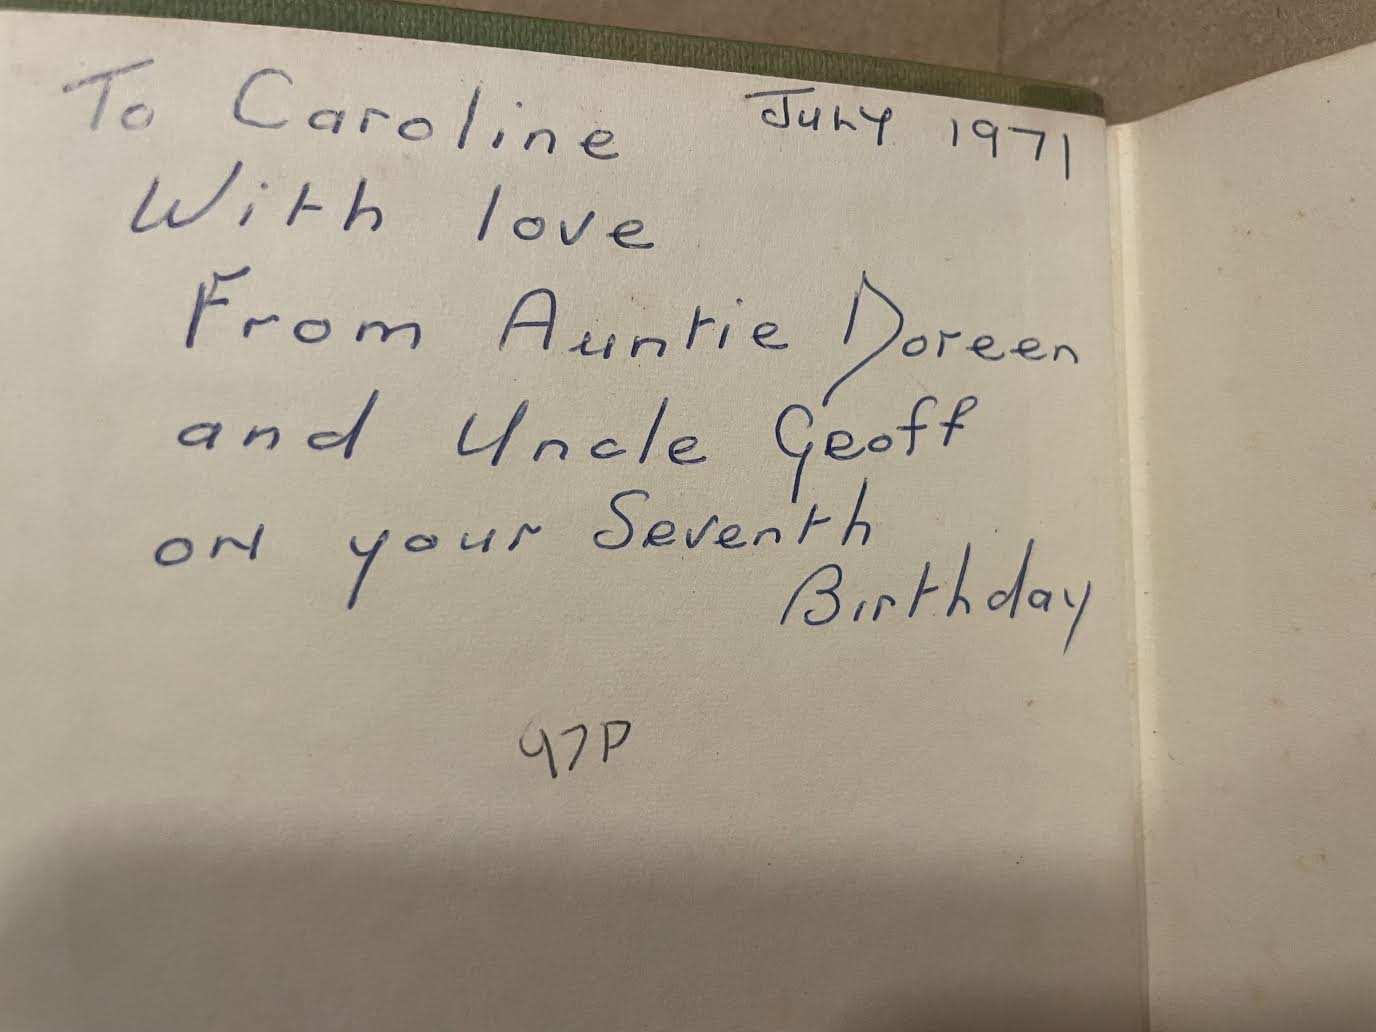 To Caroline July 1971
With love
From Auntie Doreen
and Uncle Geoff
on your Seventh
Birthday
97P